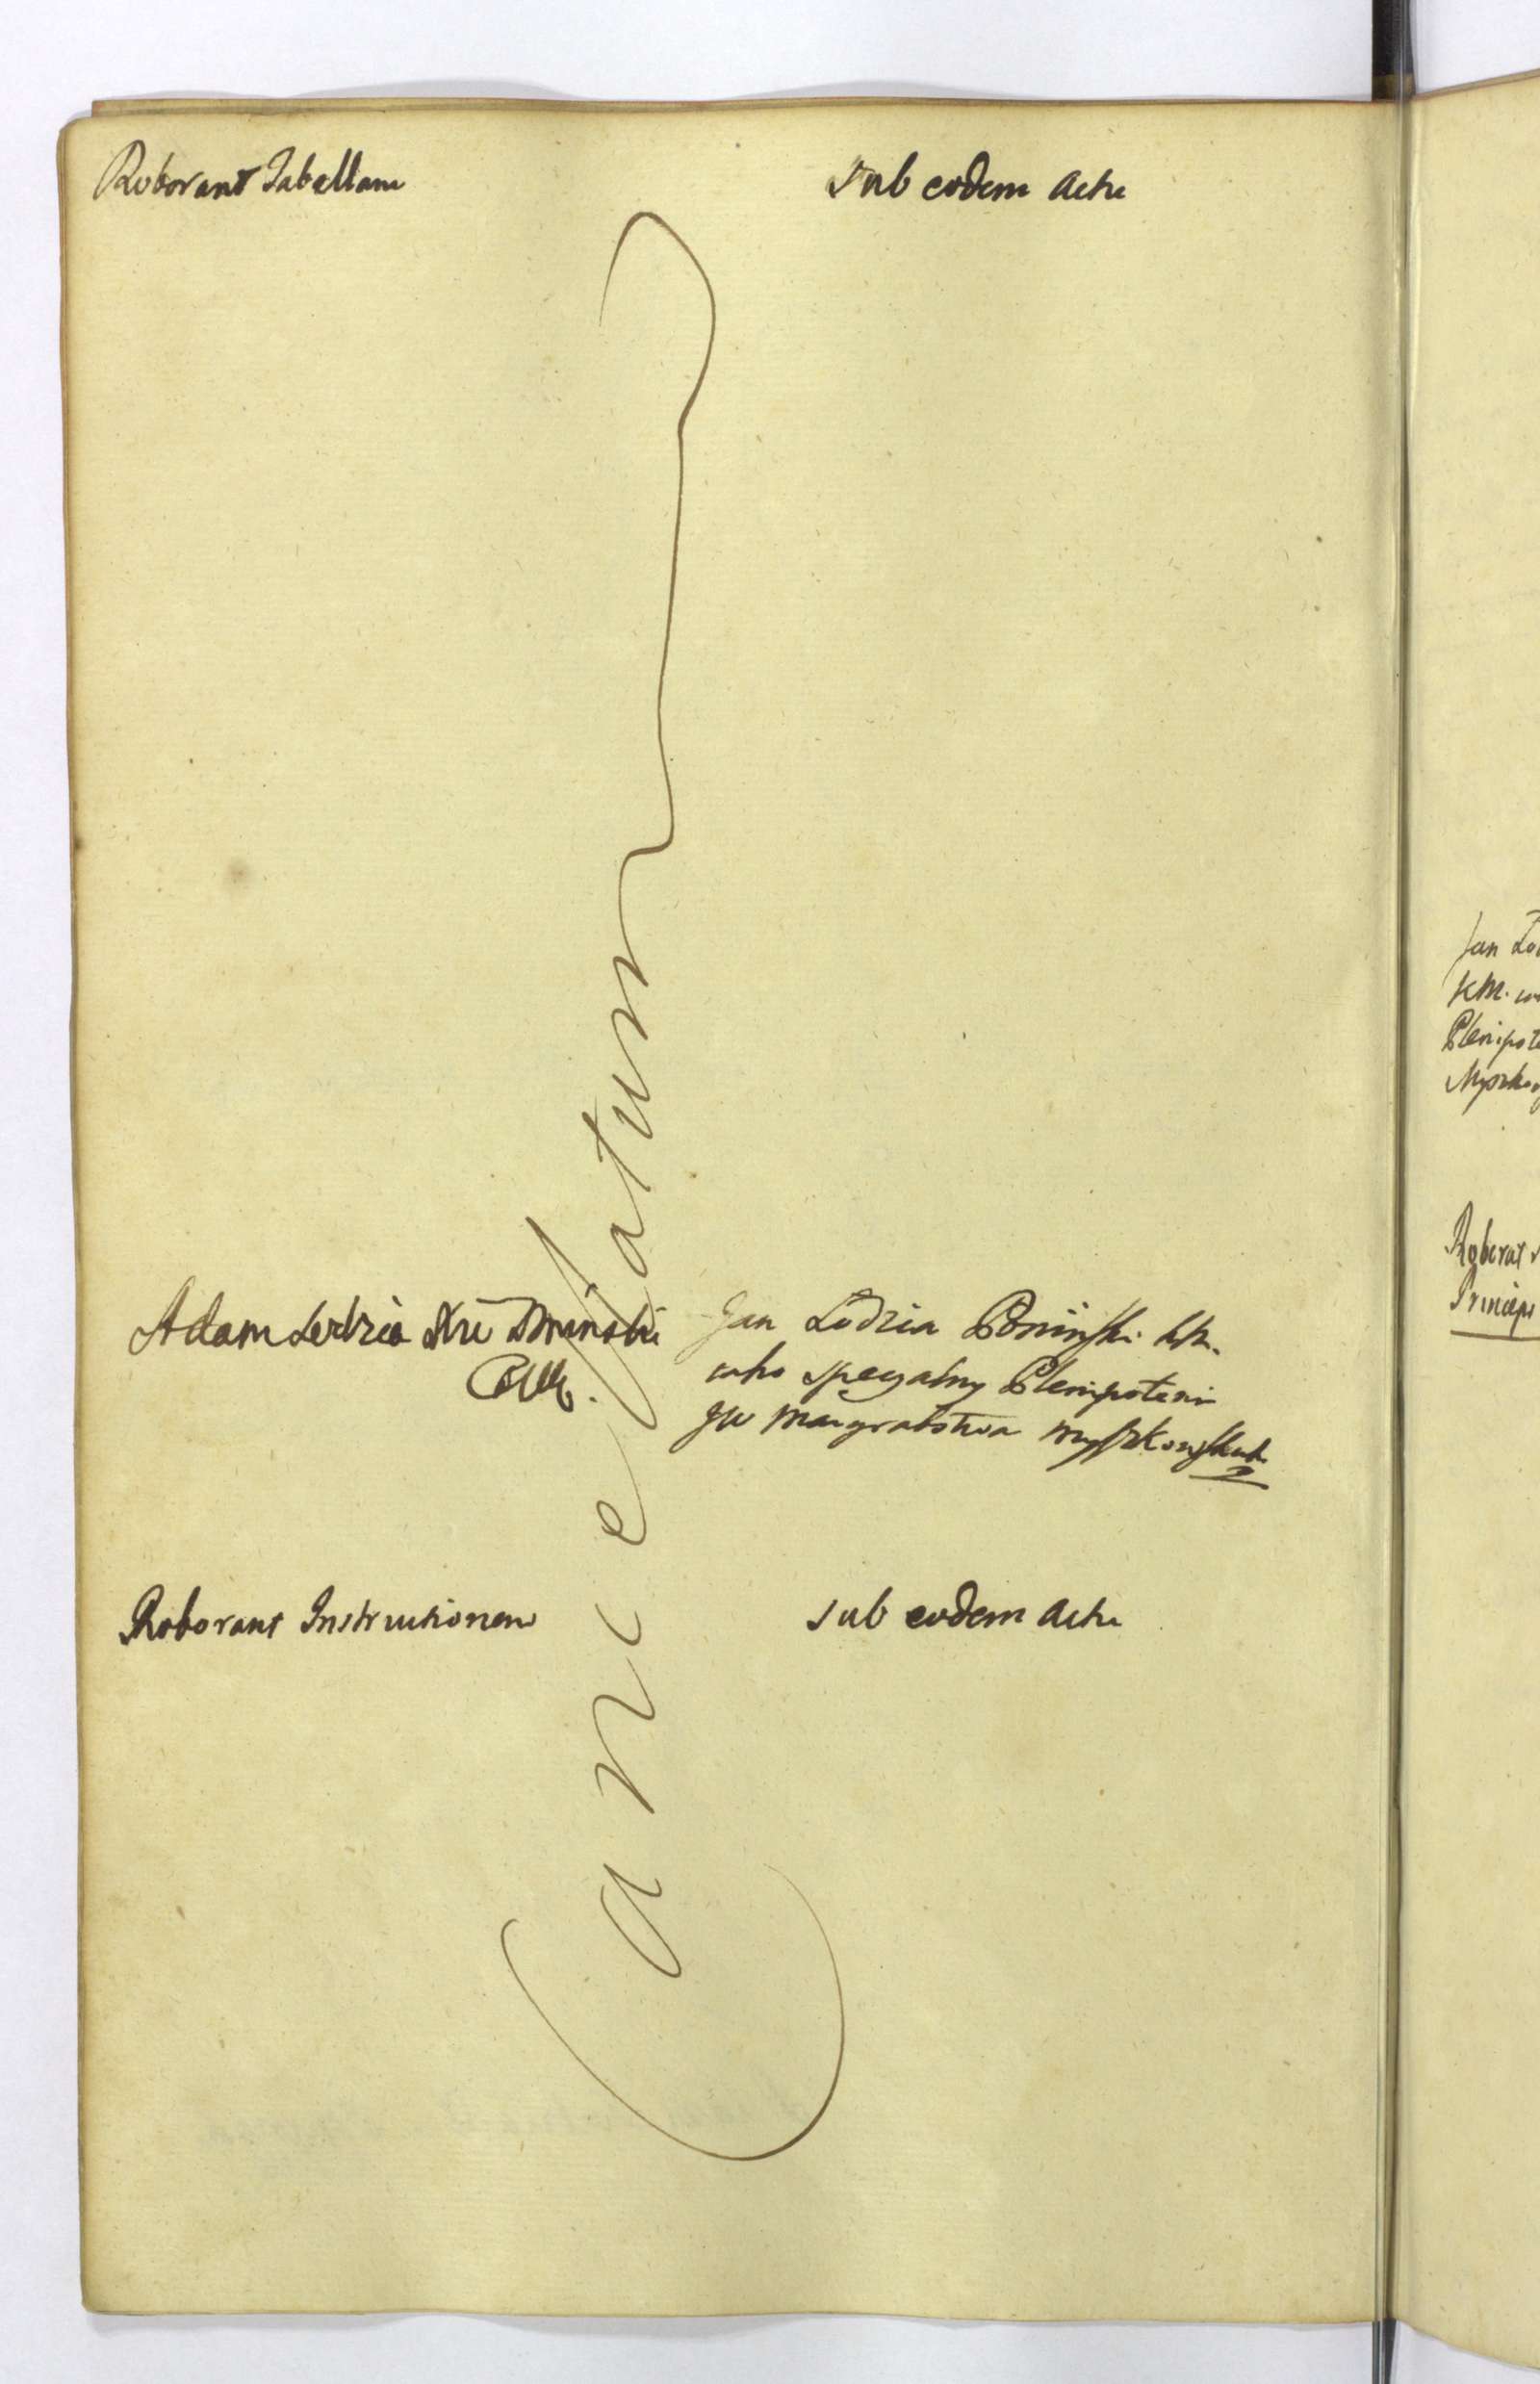 Roborant Tabellam
sub eodem Actu
Cancellatum
Adam Łodzia Xże Poninski
Jan Łodzia Poniński
iako specyalny Plenipotent
Margrabstwa Myszkowskich
Roborant Instructionem
sub eodem Actu
Jan
KM.
Plenipote
Myszkow
Roborat
Princeps